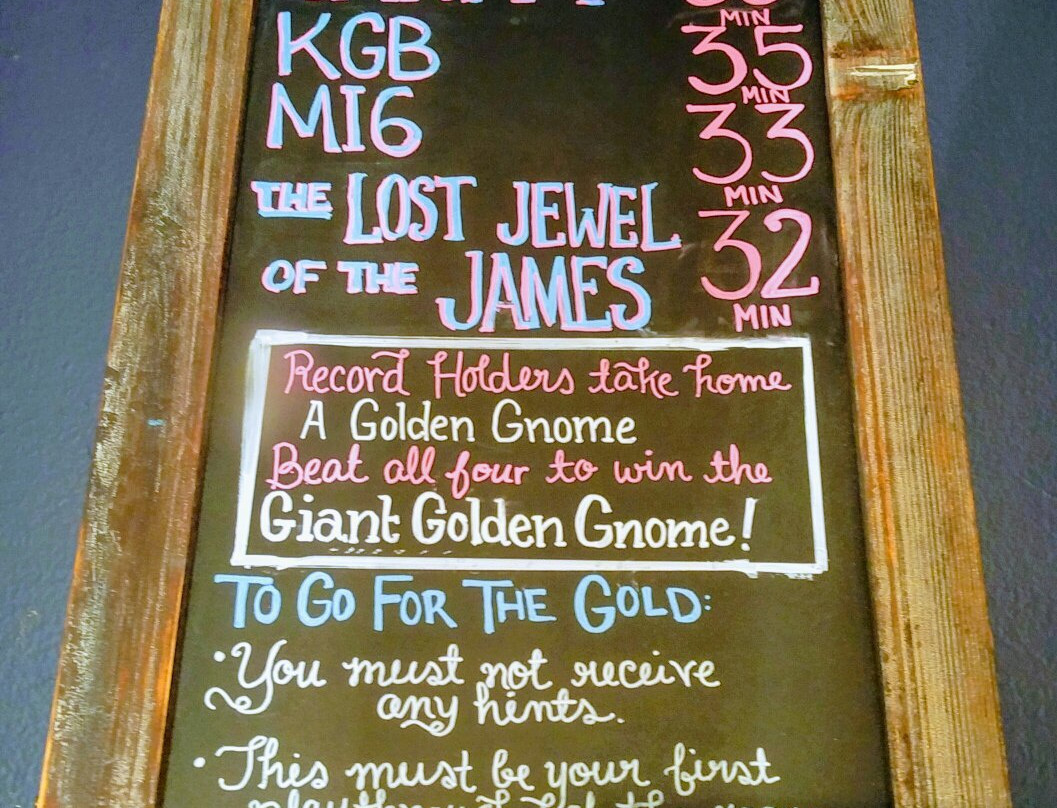 MIN
KGB 35
MIN
MI6 33
MIN
THE LOST JEWEL 32
OF THE JAMES
MIN
Record Holders take home
A Golden Gnome
Beat all four to win the
Giant Golden Gnome!
TO GO FOR THE GOLD:
• You must not receive
any hints.
• This must be your first